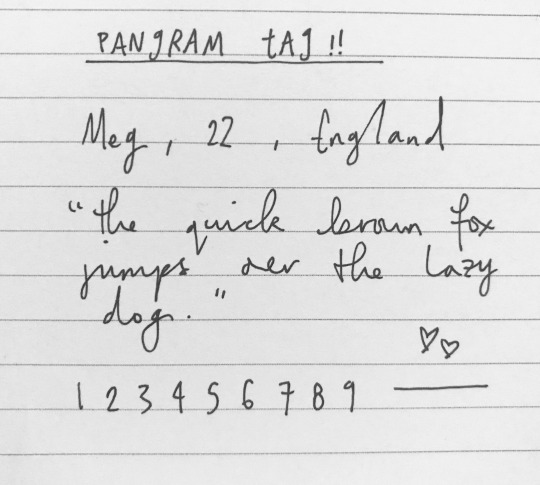 PANGRAM TAG!!
Meg, 22, England
"the quick brown fox
jumps over the lazy
dog."
1 2 3 4 5 6 7 8 9